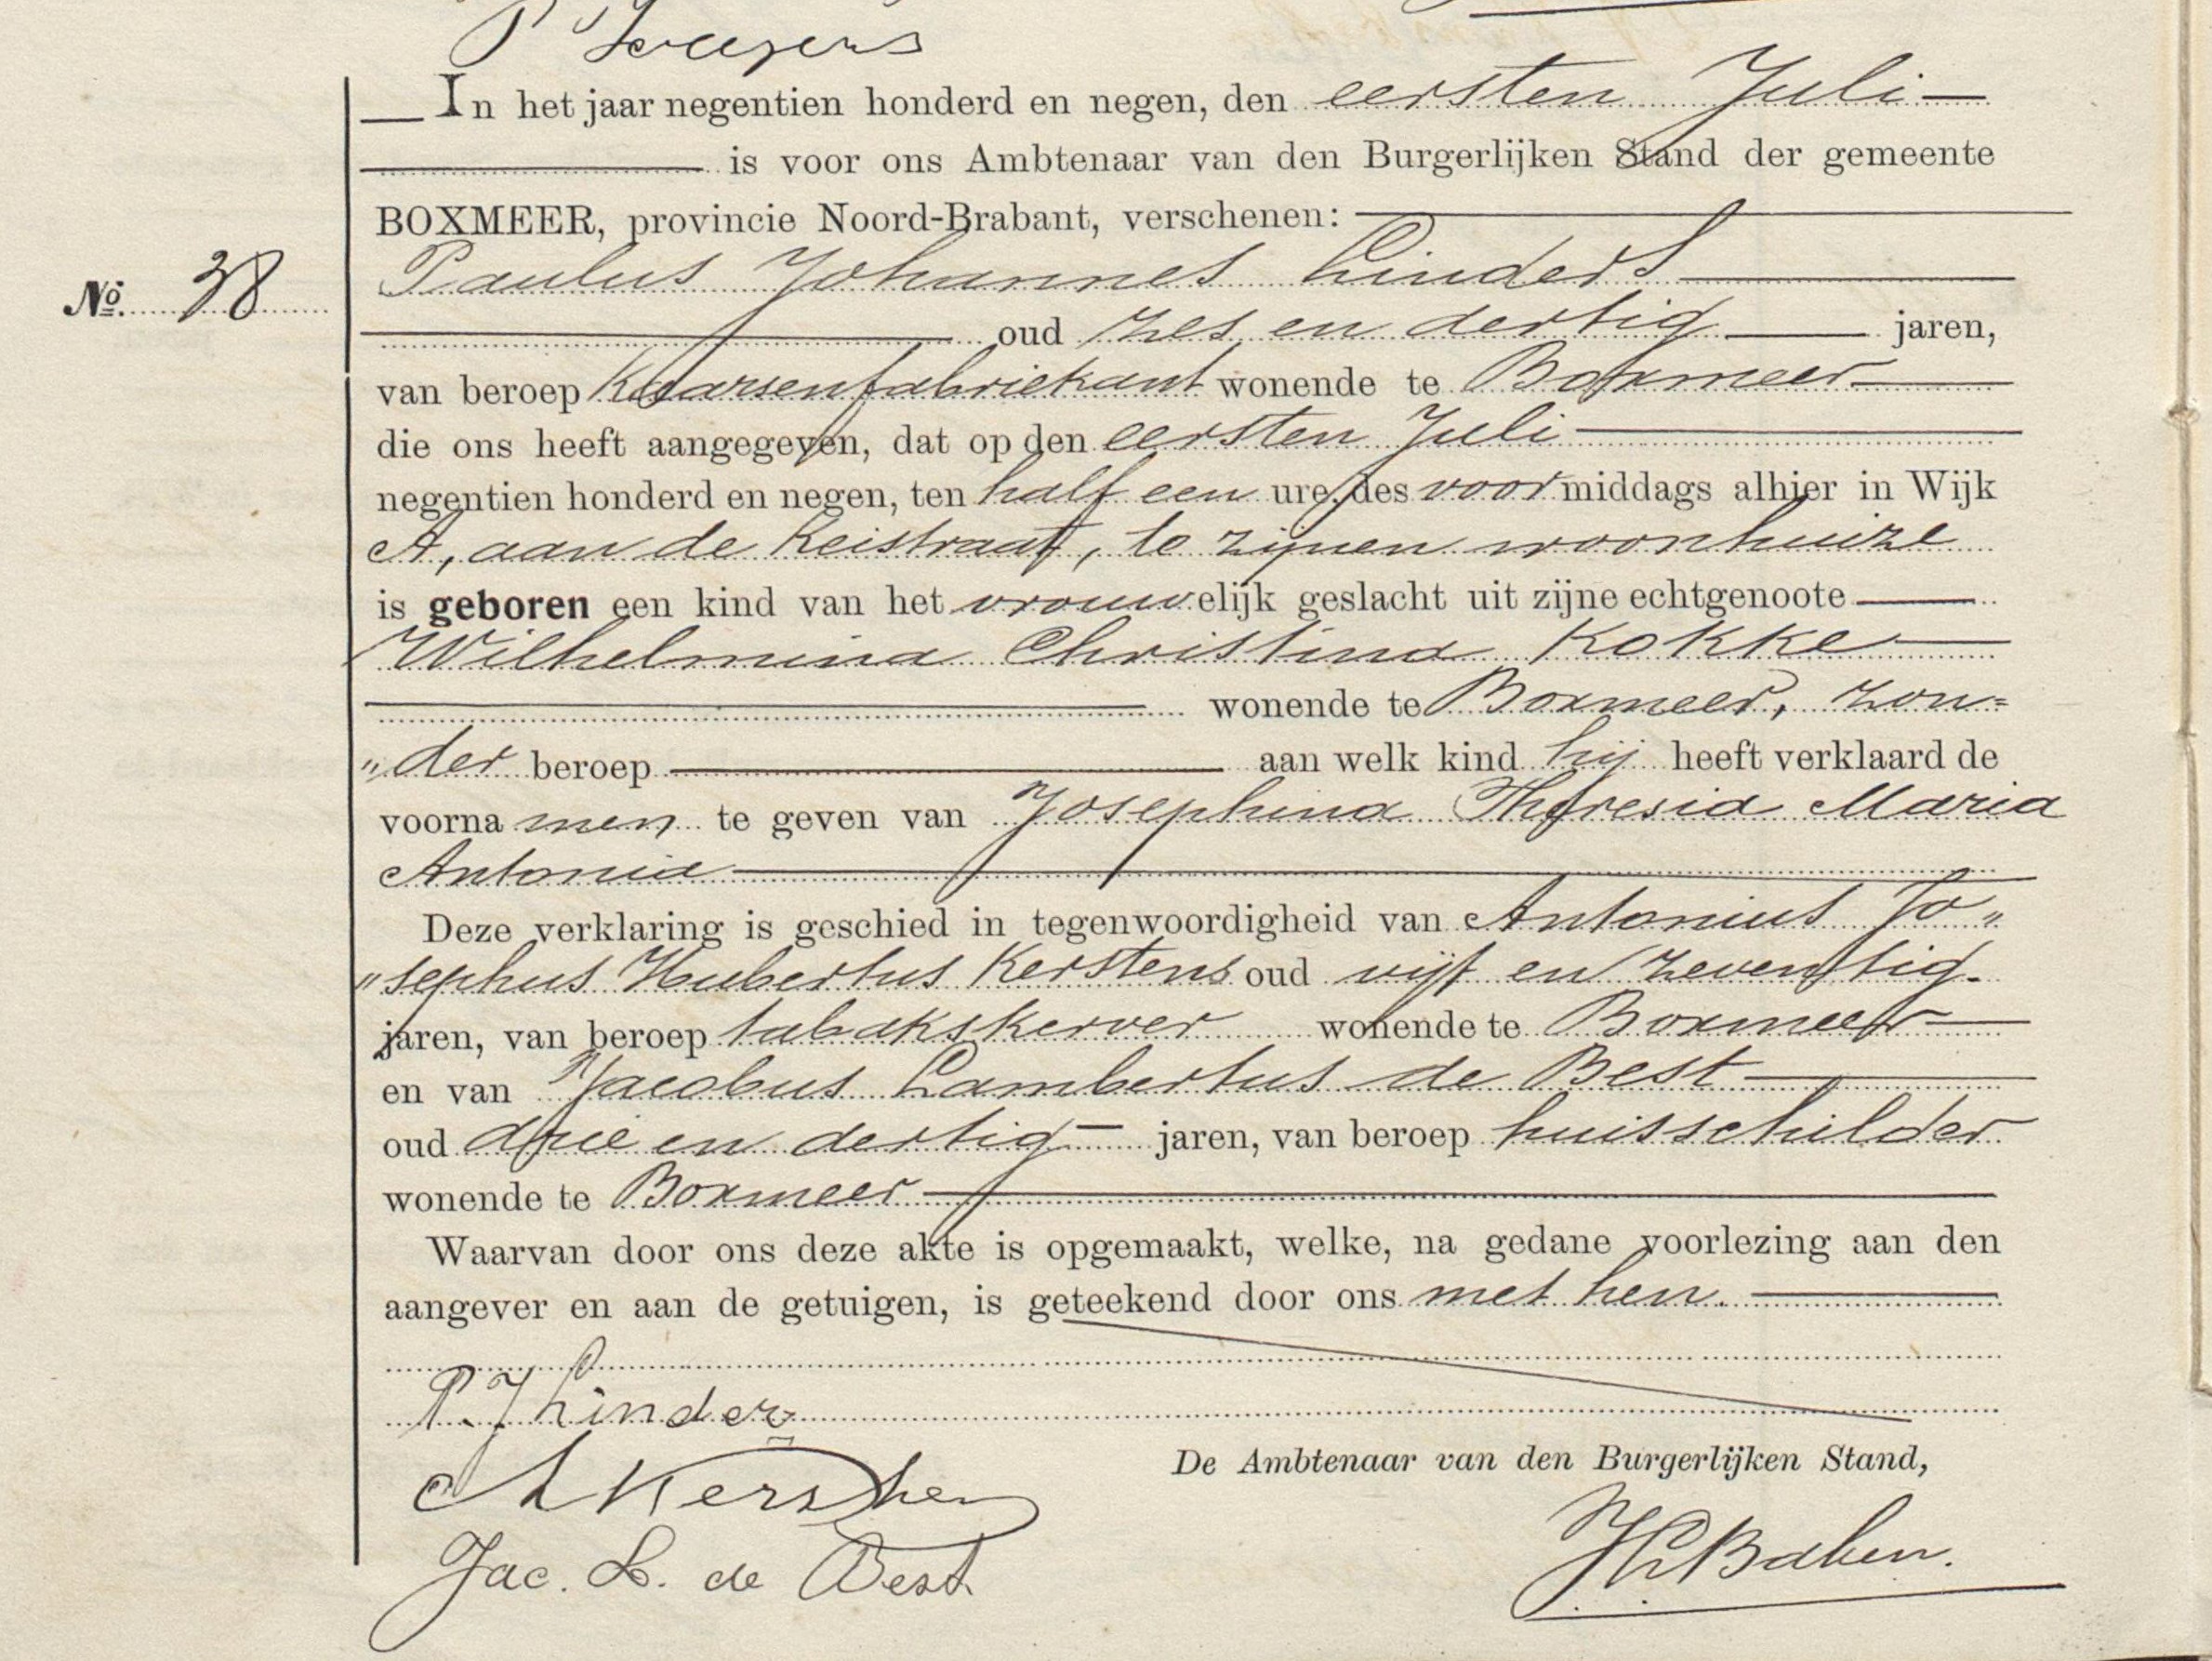 In het jaar negentien honderd en negen, den eersten Juli
is voor ons Ambtenaar van den Burgerlijken Stand der gemeente
BOXMEER, provincie Noord-Brabant, verschenen:
Paulus Johannes Linders
No. 38
oud zes en dertig jaren,
van beroep Kaarsenfabriekant wonende te Boxmeer
die ons heeft aangegeven, dat op den eersten Juli
negentien honderd en negen, ten half een ure, des voormiddags alhier in Wijk
A, aan de Keistraat, te zijnen woonhuize
is geboren een kind van het vrouwelijk geslacht uit zijne echtgenoote
Wilhelmina Christina Kokke
wonende te Boxmeer, zon=
"der beroep aan welk kind hij heeft verklaard de
voornamen te geven van Josephina Theresia Maria
Antonia
Deze verklaring is geschied in tegenwoordigheid van Antonius Jo"
"sephus Hubertus Kerstens oud vijf en zeventig
jaren, van beroep tabakskerver wonende te Boxmeer
en van Jacobus Lambertus de Best
oud drie en dertig jaren, van beroep huisschilder
wonende te Boxmeer
Waarvan door ons deze akte is opgemaakt, welke, na gedane voorlezing aan den
aangever en aan de getuigen, is geteekend door ons met hen.
P. J. Linders
A Kerstens
De Ambtenaar van den Burgerlijken Stand,
Jac. L. de Best.